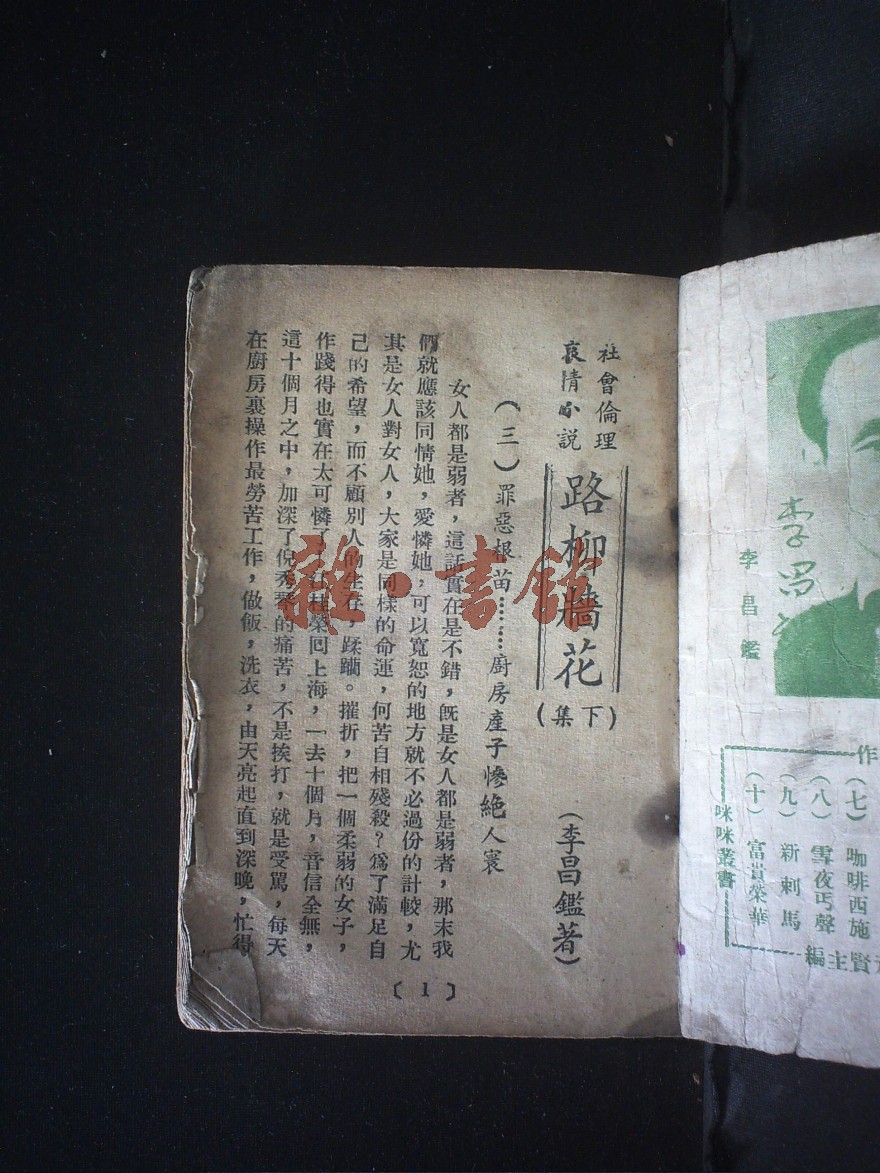 社會倫理
哀情小説
路柳牆花
(下集)
(李昌鑑著)
(三)罪惡根苗………廚房產子慘絶人寰
女人都是弱者，這話實在是不錯，旣是女人都是弱者，那末我
們就應該同情她，愛憐她，可以寬恕的地方就不必過份的計較，尤
其是女人對女人，大家是同樣的命運，何苦自相殘殺？爲了滿足自
己的希望，而不顧別人的生存，蹂躪。摧折，把一個柔弱的女子，
作踐得也實在太可憐了，江桂榮囘上海，一去十個月，音信全無，
這十個月之中，加深了倪秀琴的痛苦，不是挨打，就是受罵，每天
在廚房裏操作最勞苦工作，做飯，洗衣，由天亮起直到深晚，忙得
〔1〕
雜·書館
李昌
李昌鑑
作
(七)咖啡西施
(八)雪夜丐聲
(九)新刺馬
(十)富貴榮華
咪咪叢書
賢主編